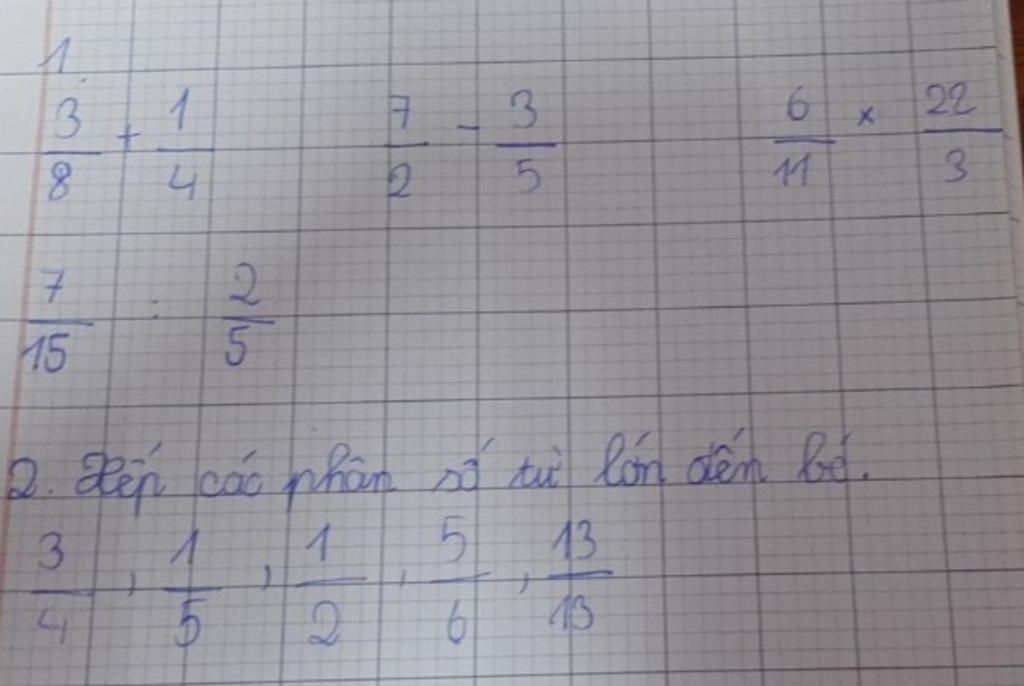 1.
3/8 + 1/4 7/2 - 3/5 6/11 × 22/3
7/15 : 2/5
2. Xếp các phân số từ lớn đến bé.
3/4, 1/5, 1/2, 5/6, 13/13